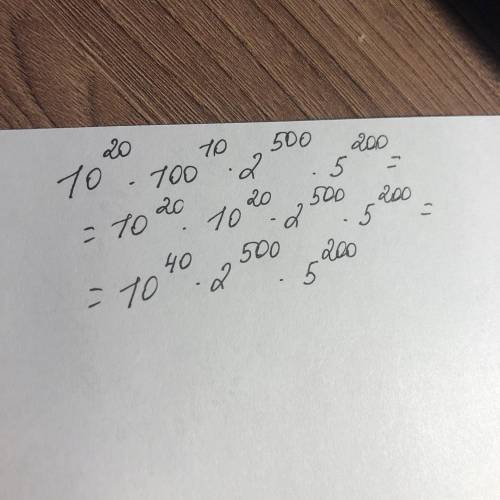 10²⁰ · 100¹⁰ · 2⁵⁰⁰ · 5²⁰⁰ =
= 10²⁰ · 10²⁰ · 2⁵⁰⁰ · 5²⁰⁰ =
= 10⁴⁰ · 2⁵⁰⁰ · 5²⁰⁰